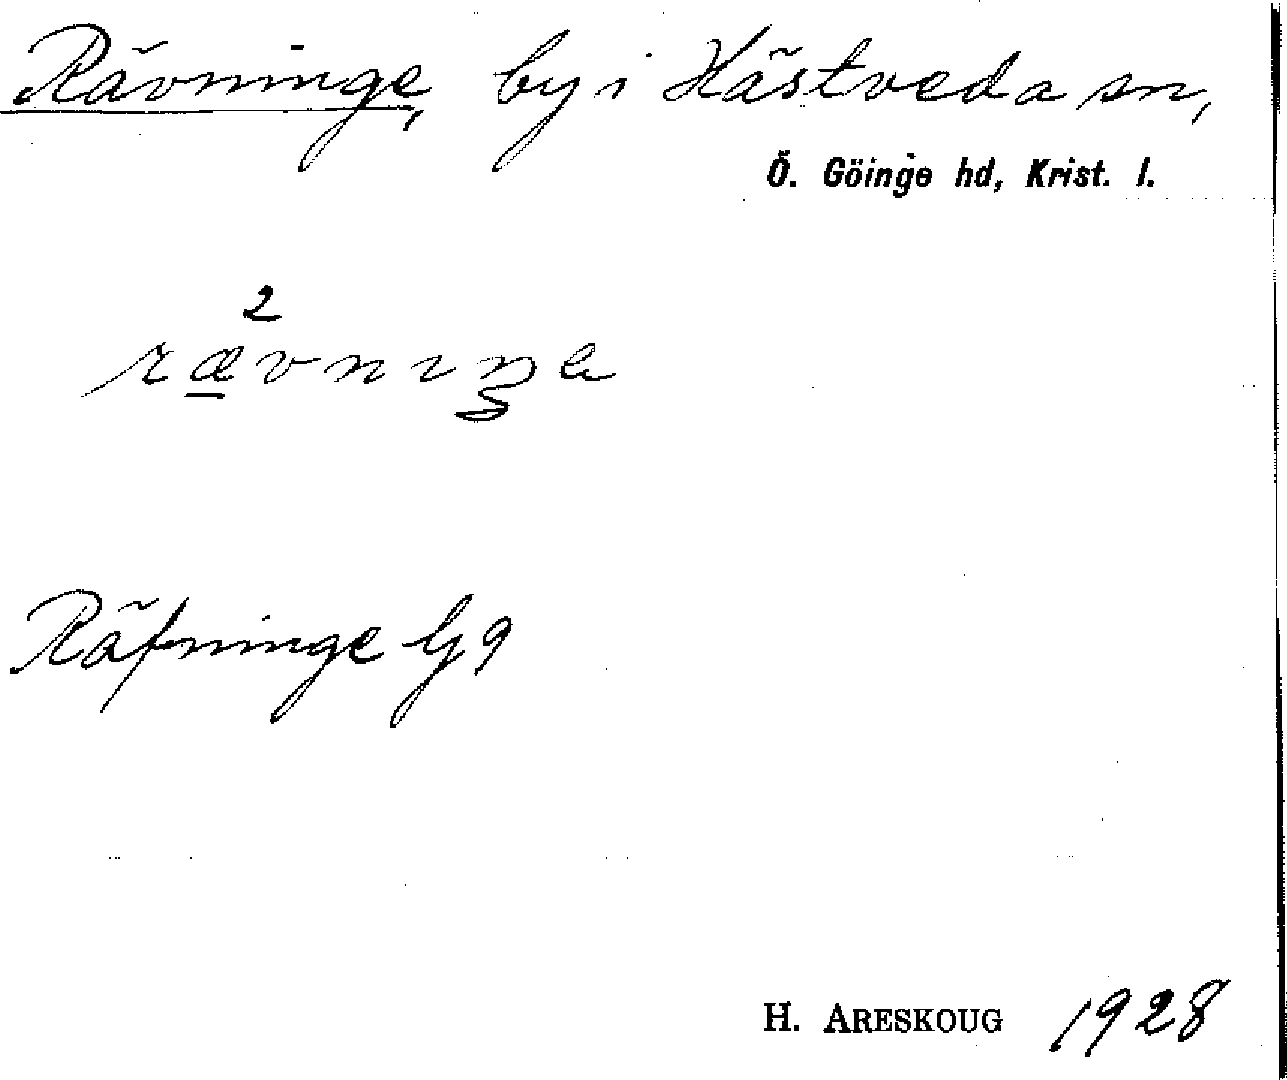 Rävninge, by i Hästveda sn,
Ö. Göinge hd, Krist. l.
2
rævnıŋe
Räfninge G 9
H. ARESKOUG 1928